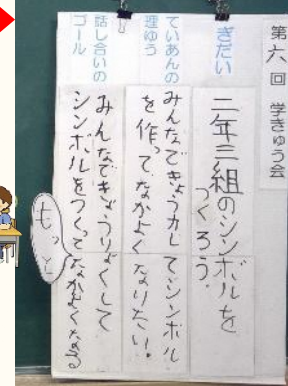 第六回 学きゅう会
ぎだい
二年三組のシンボルを
つくろう。
ていあんの
理ゆう
みんなできょう力してシンボル
を作って、なかよくなりたい。
話し合いの
ゴール
みんなできょうりょくして
シンボルをつくってなかよくなる
もっと